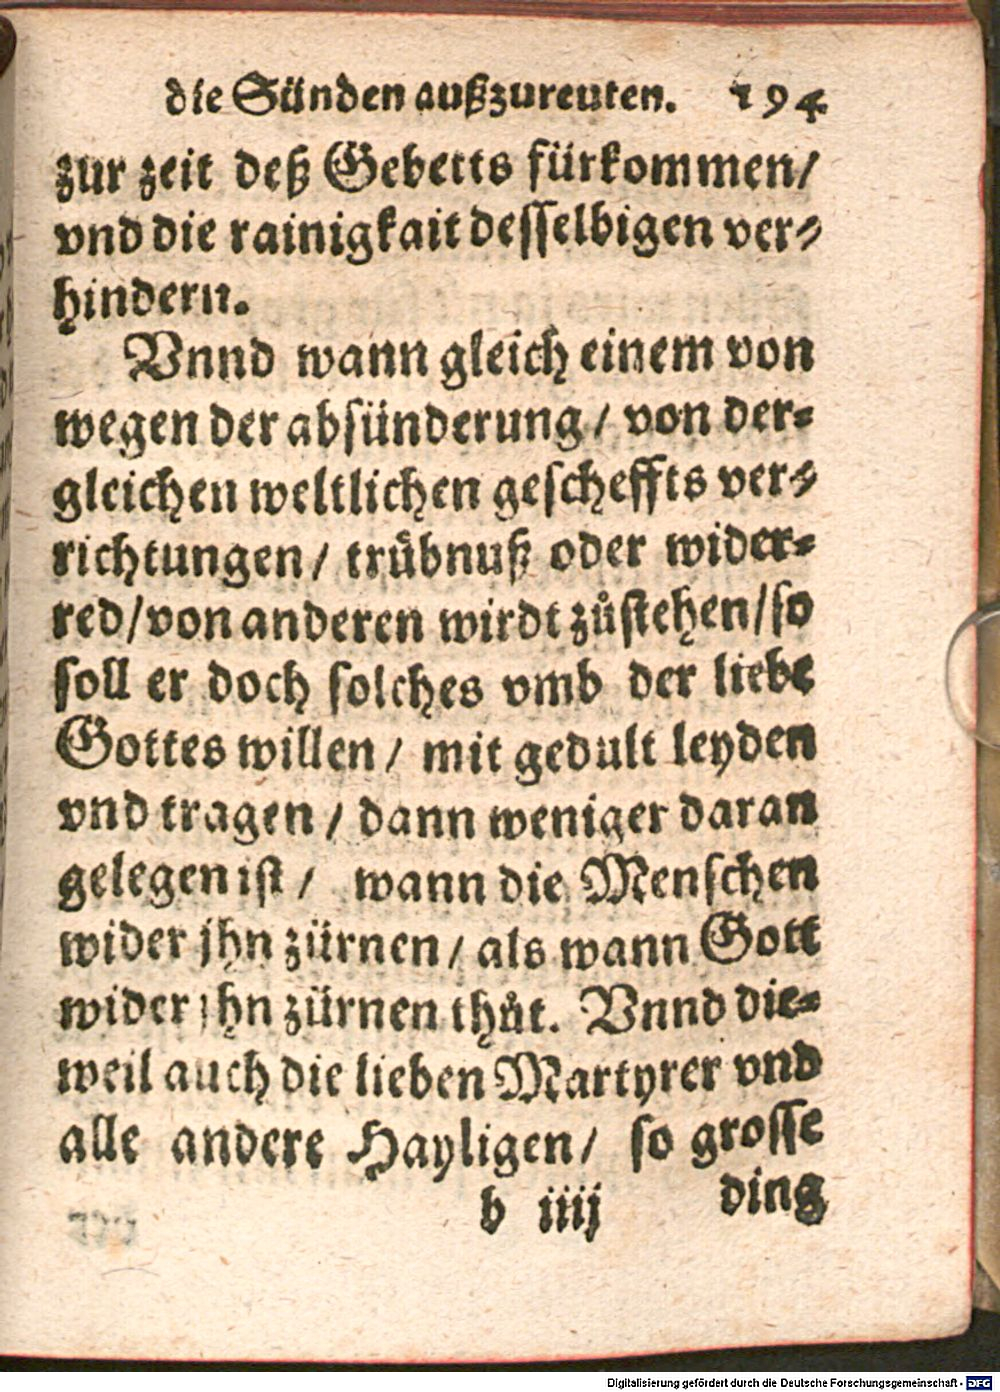 die Sünden außzureuten. 194
zur zeit deß Gebetts fürkommen/
vnd die rainigkait desselbigen ver⸗
hindern.
Vnnd wann gleich einem von
wegen der absünderung / von der⸗
gleichen weltlichen gescheffts ver⸗
richtungen / trůbnuß oder wider⸗
red/von anderen wirdt zůstehen/so
soll er doch solches vmb der liebe
Gottes willen / mit gedult leyden
vnd tragen / dann weniger daran
gelegen ist / wann die Menschen
wider jhn zürnen / als wann Gott
wider jhn zürnen thůt. Vnnd die⸗
weil auch die lieben Martyrer vnd
alle andere Hayligen / so grosse
b iiij ding
Digitalisierung gefördert durch die Deutsche Forschungsgemeinschaft - DFG